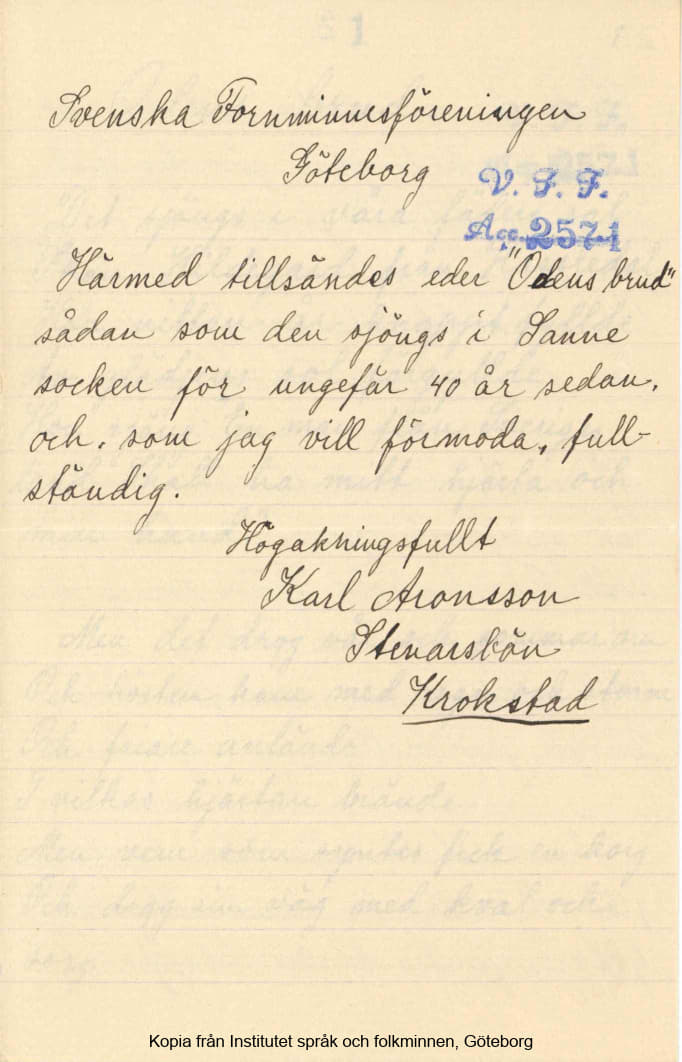 Svenska Fornminnesföreningen
Göteborg
V. F. F.
Acc. 2571
Härmed tillsändes eder "Odens brud"
sådan som den sjöngs i Sanne
socken för ungefär 40 år sedan,
och, som jag vill förmoda, full-
ständig.
Högaktningsfullt
Karl Aronsson
Krokstad
Kopia från Institutet språk och folkminnen, Göteborg